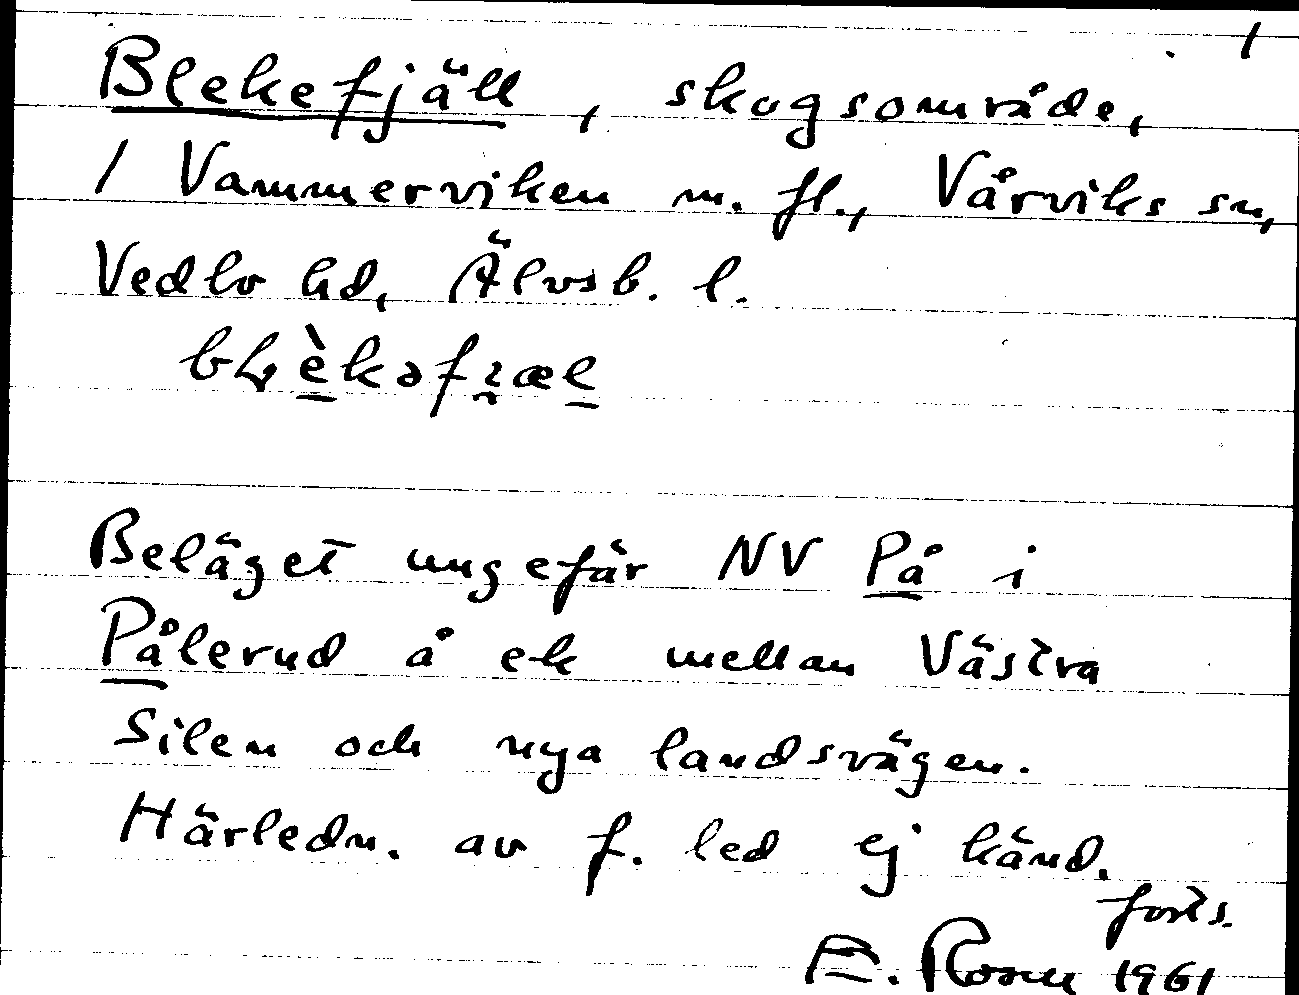 1
Blekefjäll, skogsområde,
/ Vammerviken m. fl., Vårviks sn,
Vedbo hd, Älvsb. l.
Beläget ungefär NV På i
Pålerud å ek mellan Västra
Silen och nya landsvägen.
Härledn. av f. led ej känd.
forts.
E. 1961